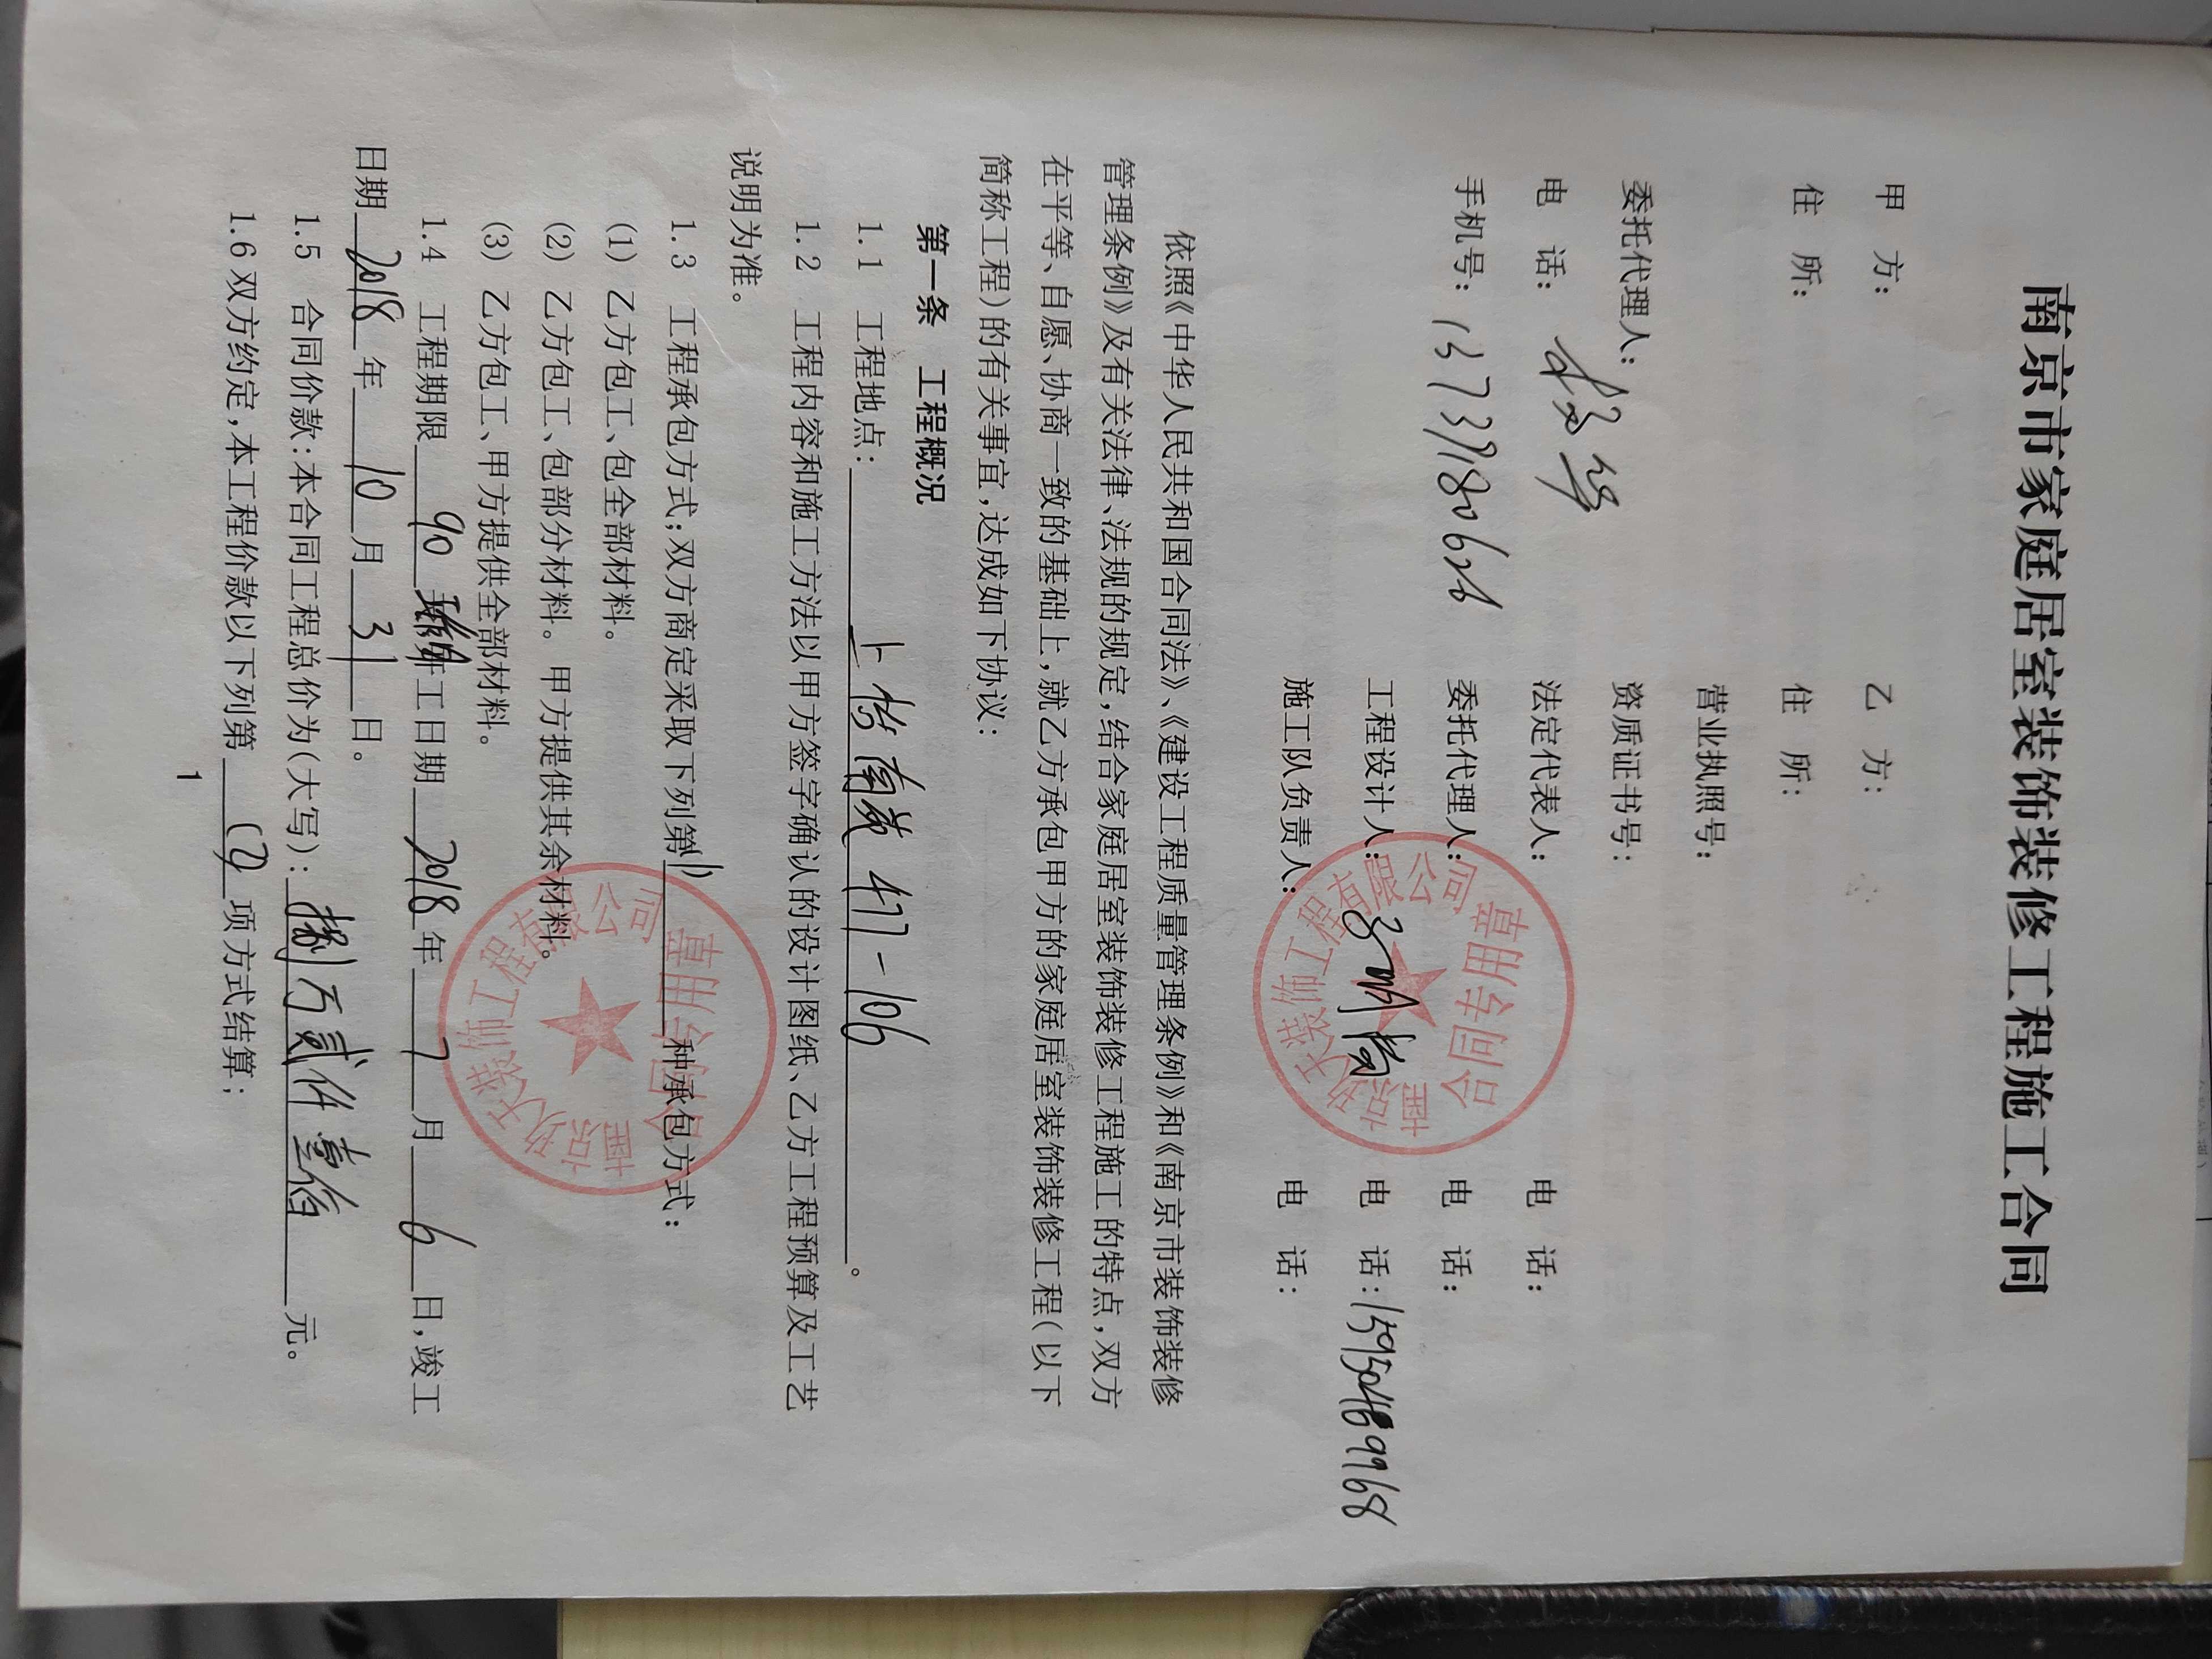 南京市家庭居室装饰装修工程施工合同
甲 方： 乙 方：
住 所： 住 所：
营业执照号：
委托代理人： 资质证书号：
电 话： 法定代表人： 电 话：
手机号： 委托代理人： 电 话：
工程设计人： 电 话：
施工队负责人： 电 话：
依照《中华人民共和国合同法》、《建设工程质量管理条例》和《南京市装饰装修
管理条例》及有关法律、法规的规定，结合家庭居室装饰装修工程施工的特点，双方
在平等、自愿、协商一致的基础上，就乙方承包甲方的家庭居室装饰装修工程（以下
简称工程）的有关事宜，达成如下协议：
第一条 工程概况
1.1 工程地点： 47-106 。
1.2 工程内容和施工方法以甲方签字确认的设计图纸、乙方工程预算及工艺
说明为准。
1.3 工程承包方式；双方商定采取下列第 (1) 种承包方式：
(1) 乙方包工、包全部材料。
(2) 乙方包工、包部分材料。甲方提供其余材料。
(3) 乙方包工、甲方提供全部材料。
1.4 工程期限 90 开工日期 2018 年 7 月 6 日，竣工
日期 2018 年 10 月 31 日。
1.5 合同价款：本合同工程总价为（大写）： 捌万贰仟壹佰 元。
1.6 双方约定，本工程价款以下列第 (2) 项方式结算；
1
合同专用章
合同专用章